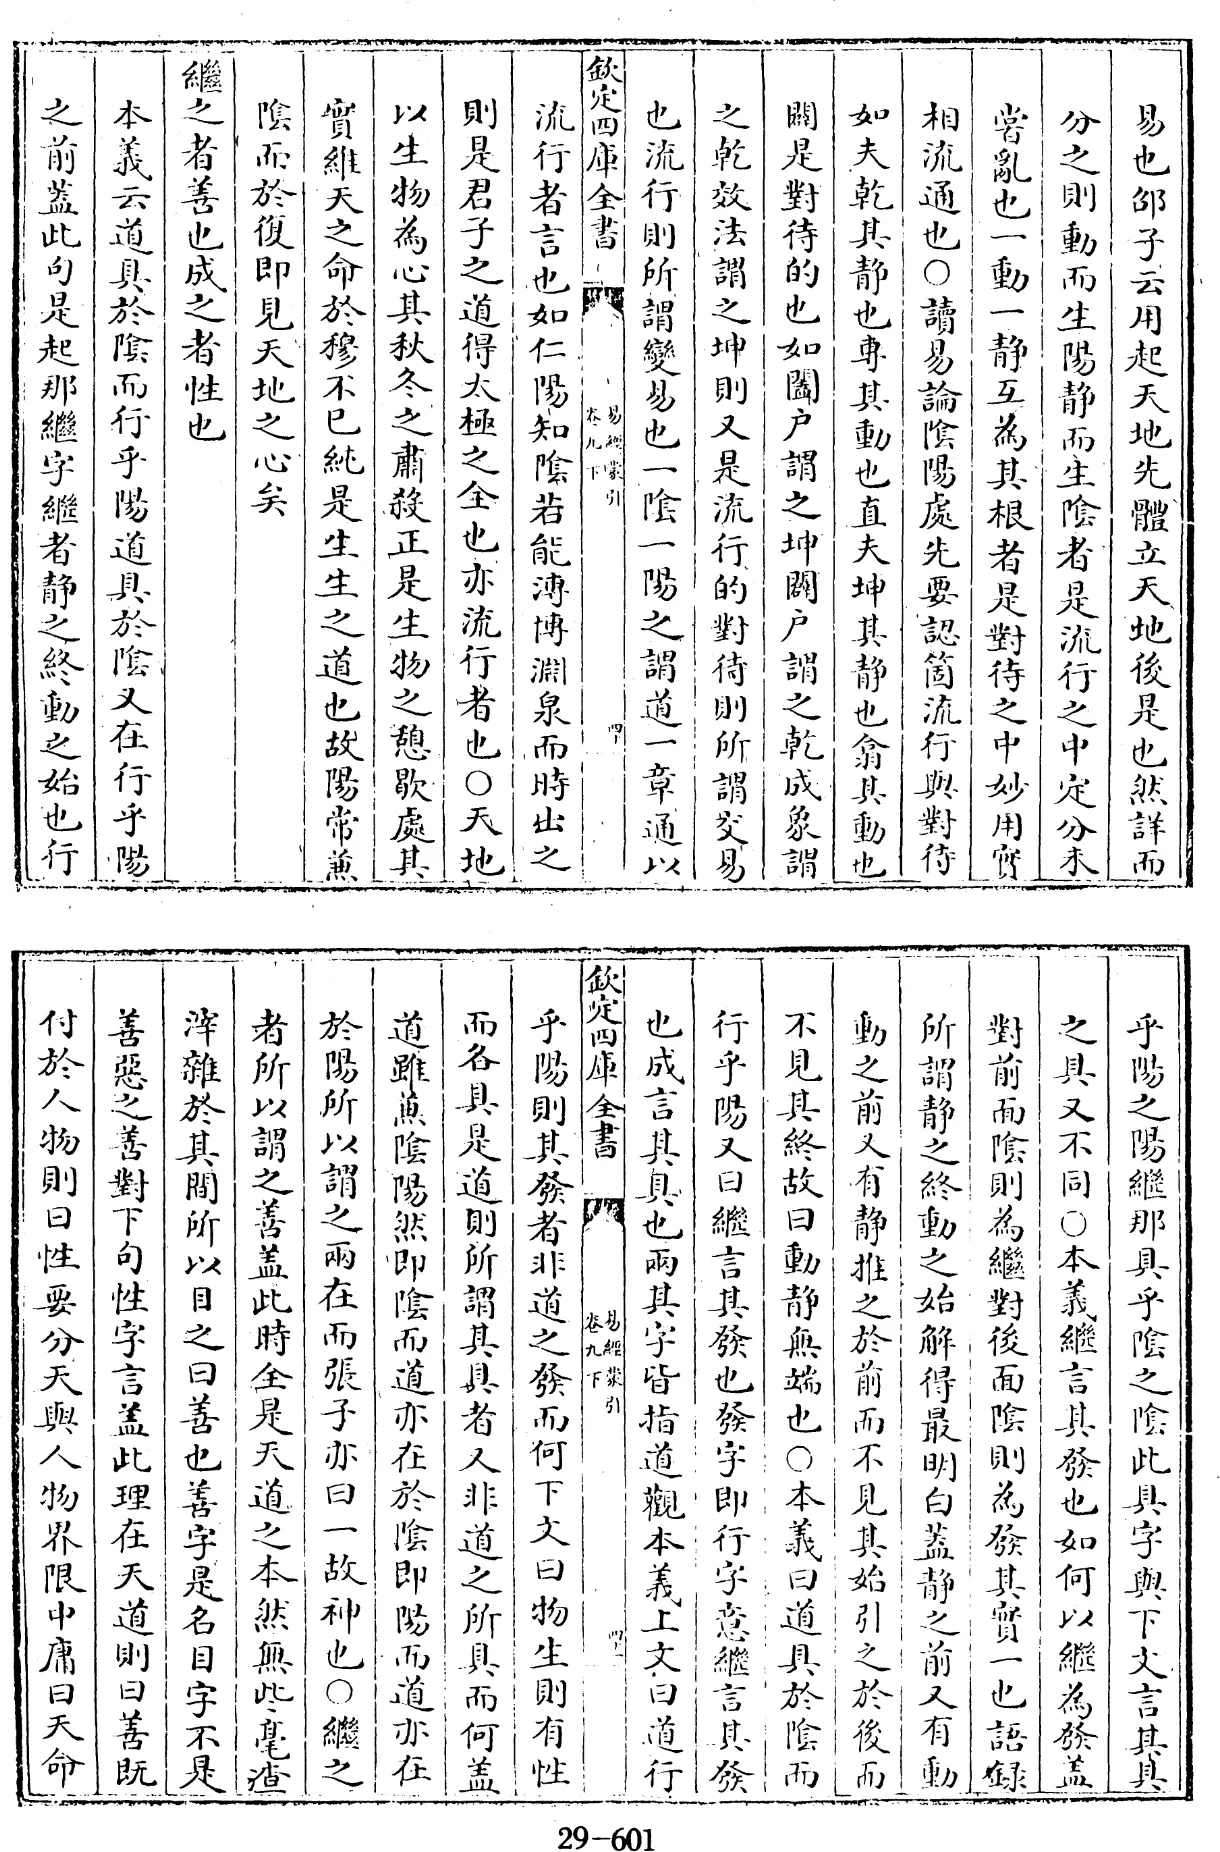 易也邵子云用起天地先體立天地後是也然詳而
分之則動而生陽静而生隂者是流行之中定分未
嘗亂也一動一静互為其根者是對待之中妙用實
相流通也○讀易論隂陽處先要認箇流行與對待
如夫乾其静也專其動也直夫坤其静也翕其動也
闢是對待的也如闔户謂之坤闢户謂之乾成象謂
之乾效法謂之坤則又是流行的對待則所謂交易
也流行則所謂變易也一隂一陽之謂道一章通以
欽定四庫全書
易經蒙引
卷九下
四十
流行者言也如仁陽知隂若能溥博淵泉而時出之
則是君子之道得太極之全也亦流行者也○天地
以生物為心其秋冬之肅殺正是生物之憩歇處其
實維天之命於穆不已純是生生之道也故陽常兼
隂而於復即見天地之心矣
繼之者善也成之者性也
本義云道具於隂而行乎陽道具於隂又在行乎陽
之前蓋此句是起那繼字繼者静之終動之始也行
乎陽之陽繼那具乎隂之隂此具字與下文言其具
之具又不同○本義繼言其發也如何以繼為發蓋
對前面隂則為繼對後面隂則為發其實一也語録
所謂静之終動之始解得最明白蓋静之前又有動
動之前又有静推之於前而不見其始引之於後而
不見其終故曰動静無端也○本義曰道具於隂而
行乎陽又曰繼言其發也發字即行字意繼言其發
也成言其具也兩其字皆指道觀本義上文曰道行
欽定四庫全書
易經蒙引
卷九下
四十一
乎陽則其發者非道之發而何下文曰物生則有性
而各具是道則所謂其具者又非道之所具而何蓋
道雖兼隂陽然即隂而道亦在於隂即陽而道亦在
於陽所以謂之兩在而張子亦曰一故神也○繼之
者所以謂之善蓋此時全是天道之本然無些毫渣
滓雜於其間所以目之曰善也善字是名目字不是
善惡之善對下句性字言蓋此理在天道則曰善既
付於人物則曰性要分天與人物界限中庸曰天命
29-601